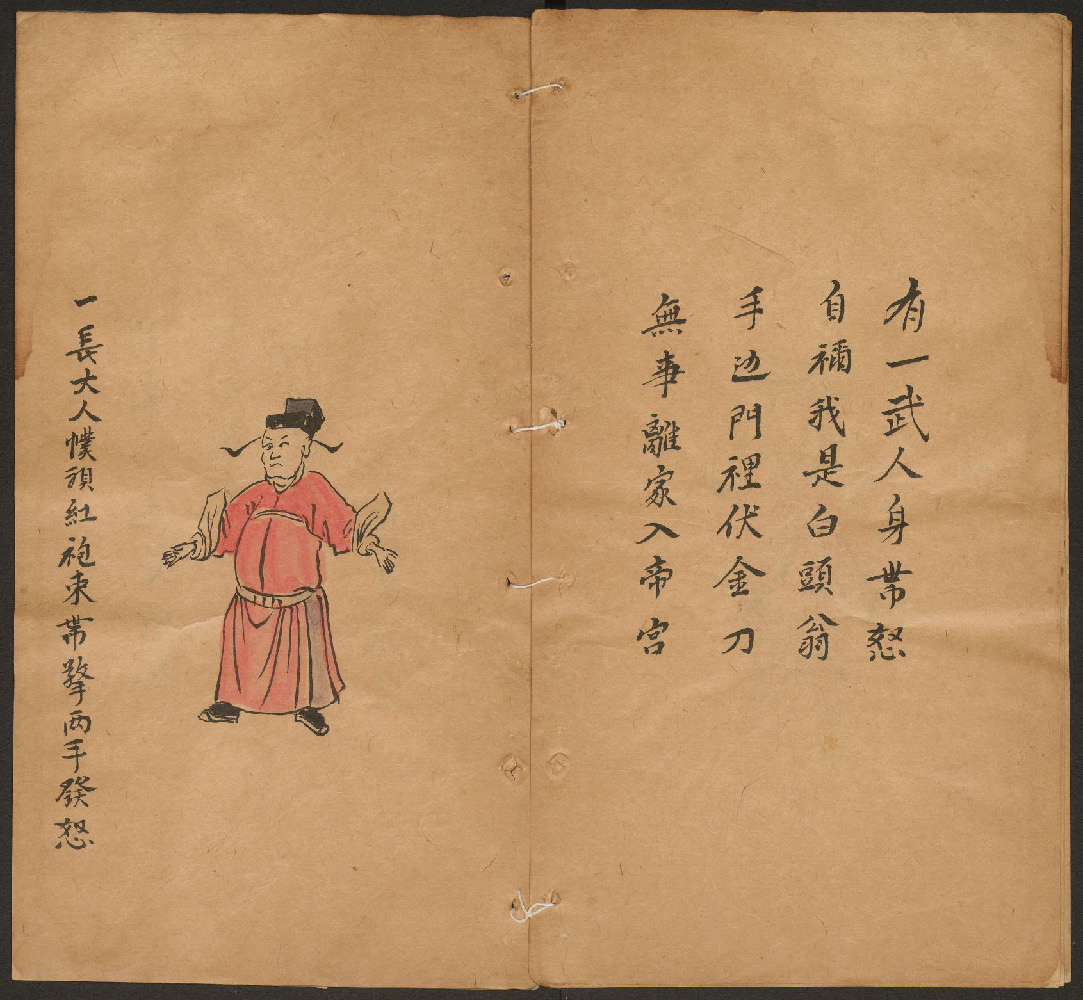 有一武人身帶怒
自稱我是白頭翁
手边門裡伏金刀
無事離家入帝宮
一長大人幞頭紅袍束帶擎兩手發怒